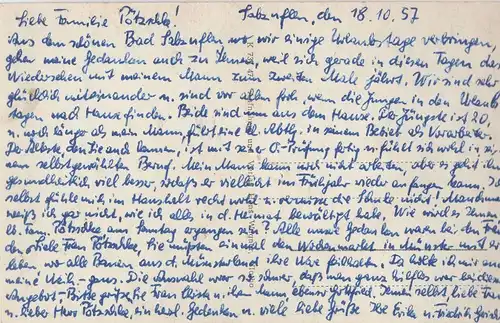 Liebe Familie Pötzschke! Salzuflen, den 18.10.57
Aus dem schönen Bad Salzuflen wo wir einige Urlaubstage verbringen,
gehen meine Gedanken auch zu Ihnen, weil sich gerade in diesen Tagen das
Wiedersehen mit meinem Mann zum zweiten Male jährt. Wir sind sehr
glücklich miteinander u. sind vor allen froh, wenn die Jungen in den Urlaubs
tagen nach Hause finden. Beide sind nun aus dem Hause. Der Jüngste ist 20,
u. noch länger als mein Mann, führt eine kl. Abtlg. in seinem Betrieb als Vorarbeiter.
Der Älteste, den Sie auch kannten, ist mit seiner Prüfung fertig u. fühlt sich wohl in sei-
nem selbstgewählten Beruf. Mein Mann kann noch nicht arbeiten, aber es geht ihm
gesundheitlich viel besser, sodaß er vielleicht im Frühjahr wieder anfangen kann.
selbst fühle mich im Haushalt recht wohl u. vermisse die Schule nicht! Manchmal
weiß ich gar nicht, wie ich alles in d. Heimat bewältigt habe. Wie wird es Ihnen
lb. Fam. Pötzschke am Samstag ergangen sein? Alle meine Gedanken waren bei den
Liebe Frau Pötzschke, Sie müßten einmal den Wochenmarkt in Münster mit er-
leben, wo alle Bauern aus d. Münsterland ihre Ware feilbieten. Da holte ich mir auch
meine gans. Die Auswahl war so schwer, daß man ganz hilflos war bei dem
Angebot. Bitte grüßen Sie Frau u. ihren Mann ebenso Gottfried. Ihnen selbst liebe Frau
u. lieber Herr Pötzschke, ein herzl. Gedenken u. viele liebe Grüße Ihre Erika u. Friedrich